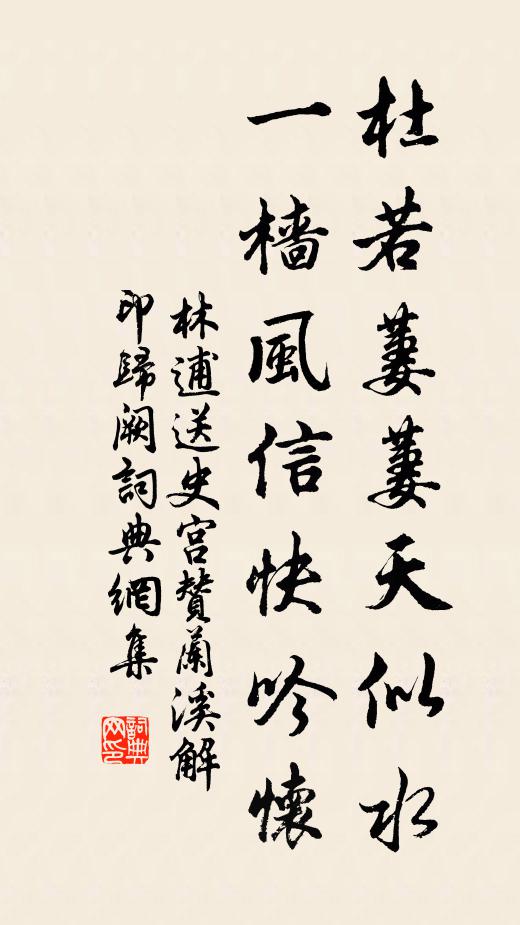 杜若萋萋天似水
一檣風信快吟懷
林逋送史宮贊蘭溪解
印歸闕詞典網集
詞典網印